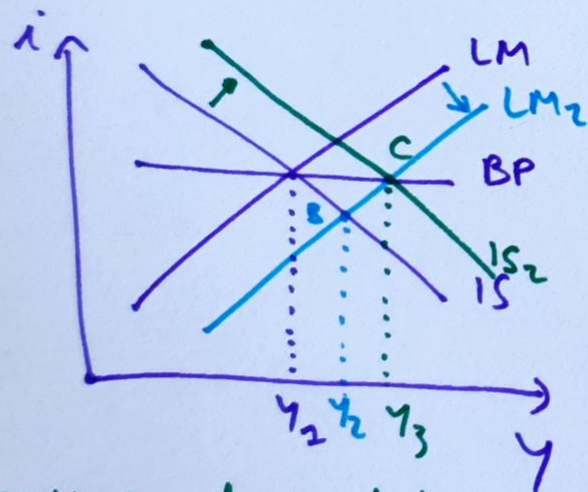 i
LM
LM₂
C
BP
B
IS₂
IS
Y₁ Y₂ Y₃
Y